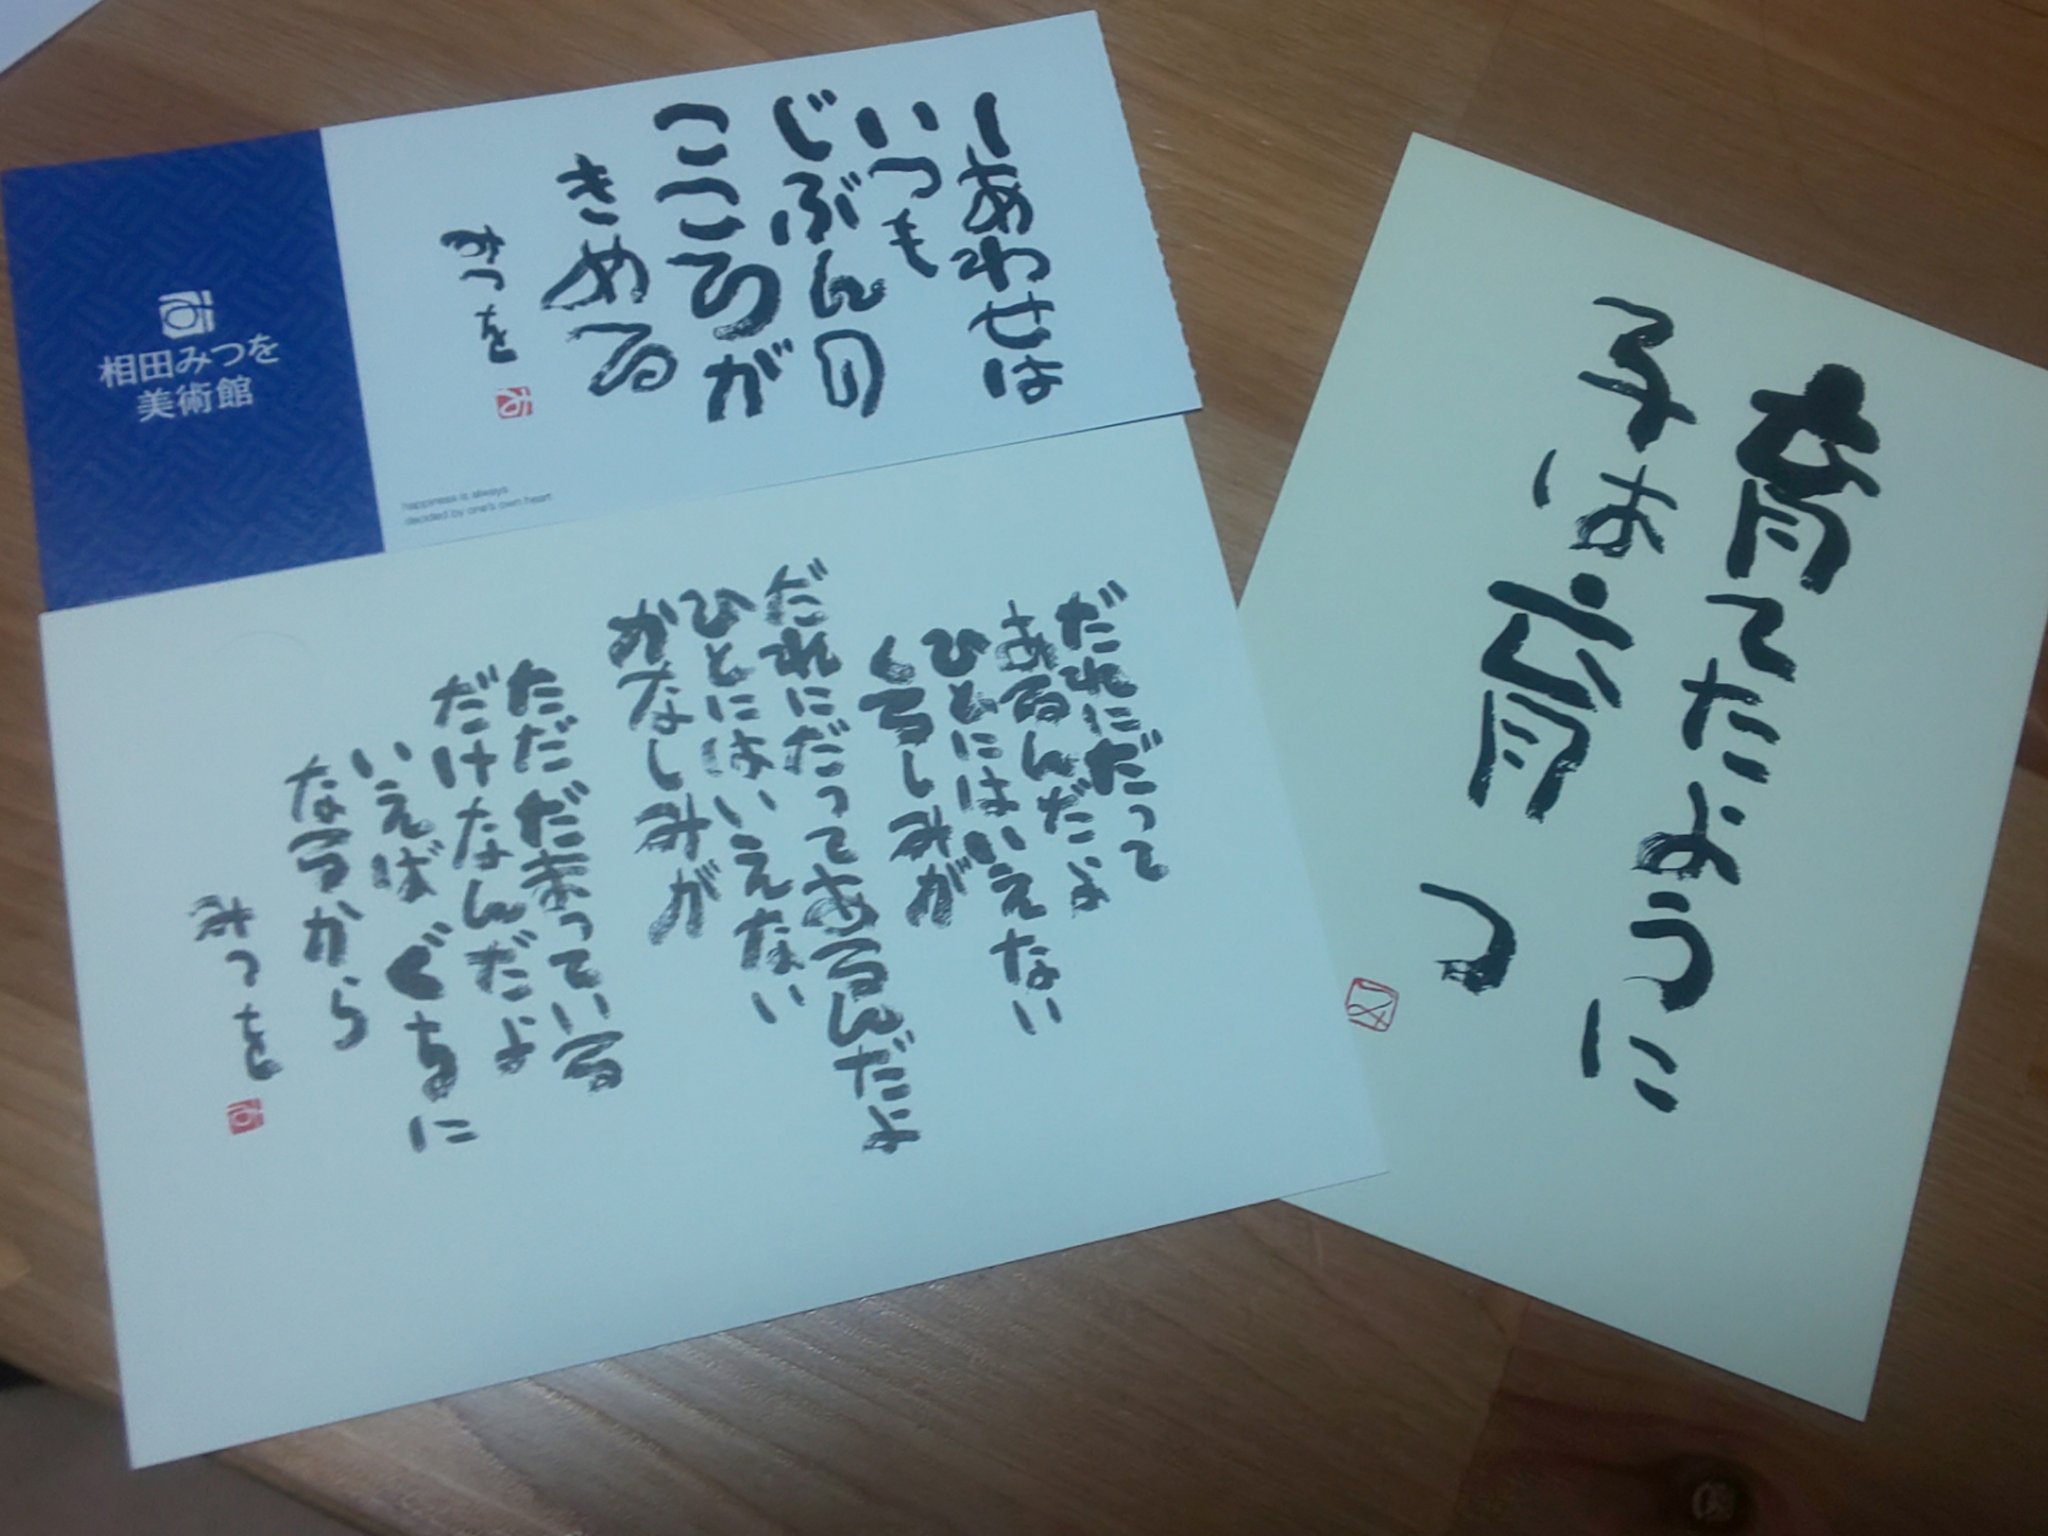 相田みつを
美術館
しあわせは
いつも
じぶんの
こころが
きめる
みつを
happiness is always
decided by one's own heart
だれにだって
あるんだよ
ひとにはいえない
くるしみが
だれにだってあるんだよ
ひとにはいえない
かなしみが
ただだまっている
だけなんだよ
いえばぐちに
なるから
みつを
育てたように
子は育つ